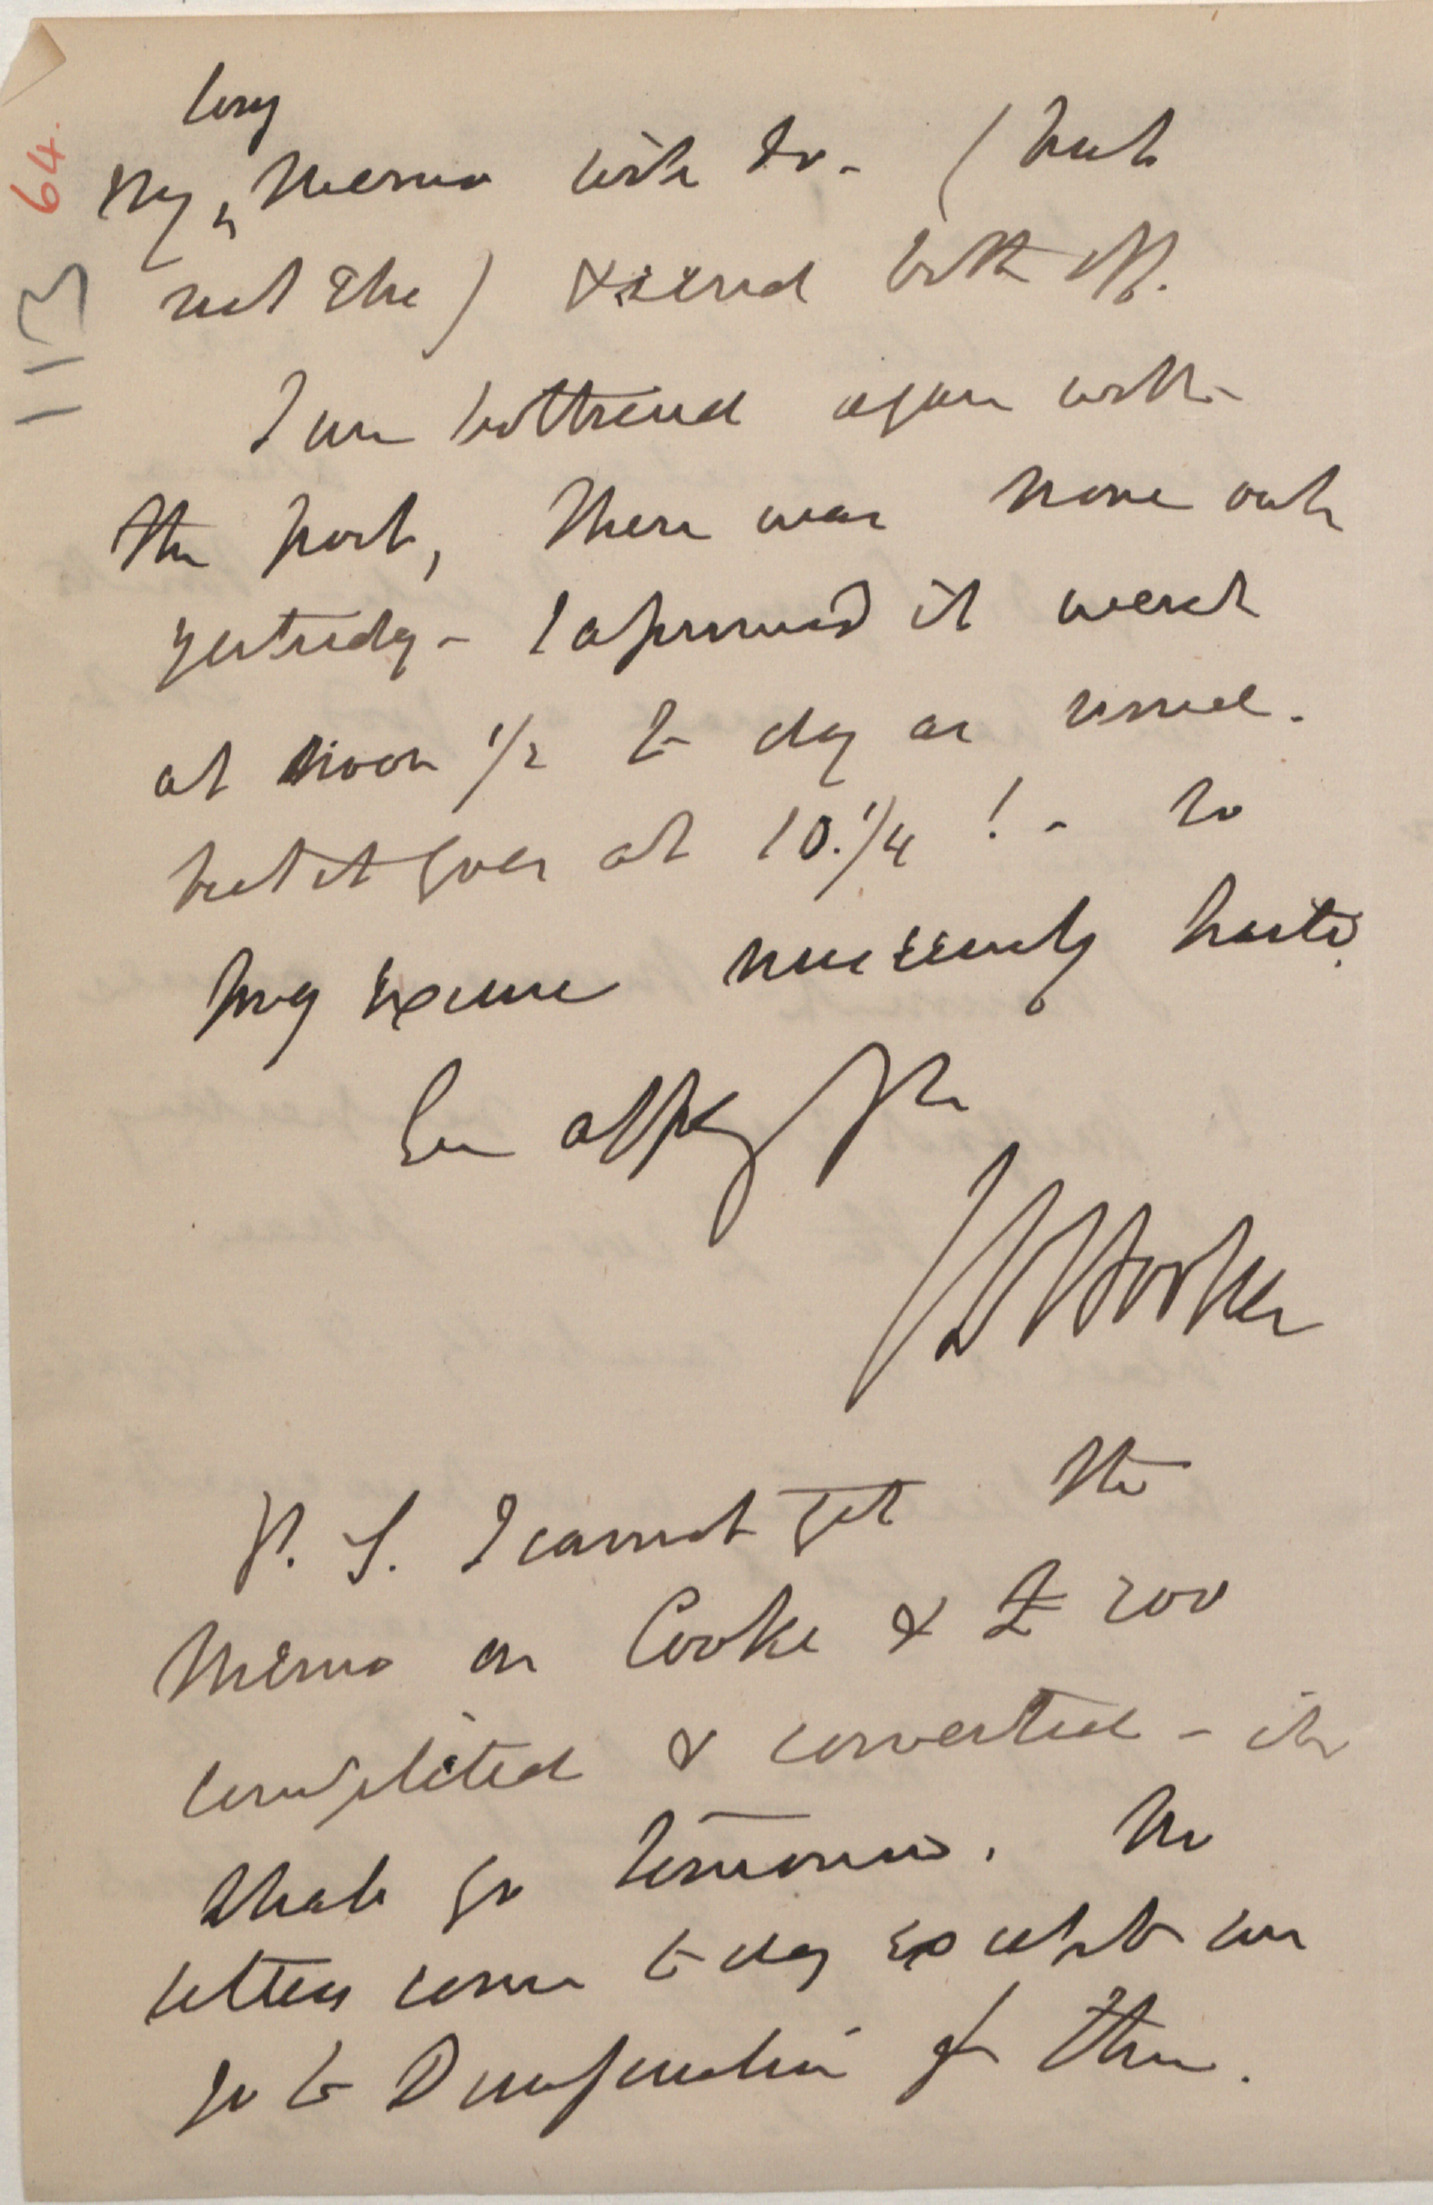 long
my ^ Memo with do - (but
not the) & send both off.
I am bothered again with
the post, there was none out
yesterday - I assumed it went
at noon 1/2 to day as usual.
but it goes at 10.1/4 ! - so
pray excuse necessary haste.
Ever affly yrs
JDHooker
P. S. I cannot get the
Memo on Cooke & £200
completed & converted - it
shall go tomorrow. No
letters come to day except we
go to for them.
113 64.